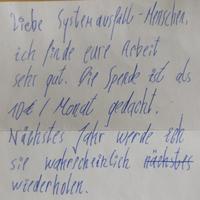 Liebe Systemausfall-Menschen,
ich finde eure Arbeit
sehr gut. Die Spende ist als
10€/Monat gedacht.
Nächstes Jahr werde ich
sie wahrscheinlich nächstes
wiederholen.